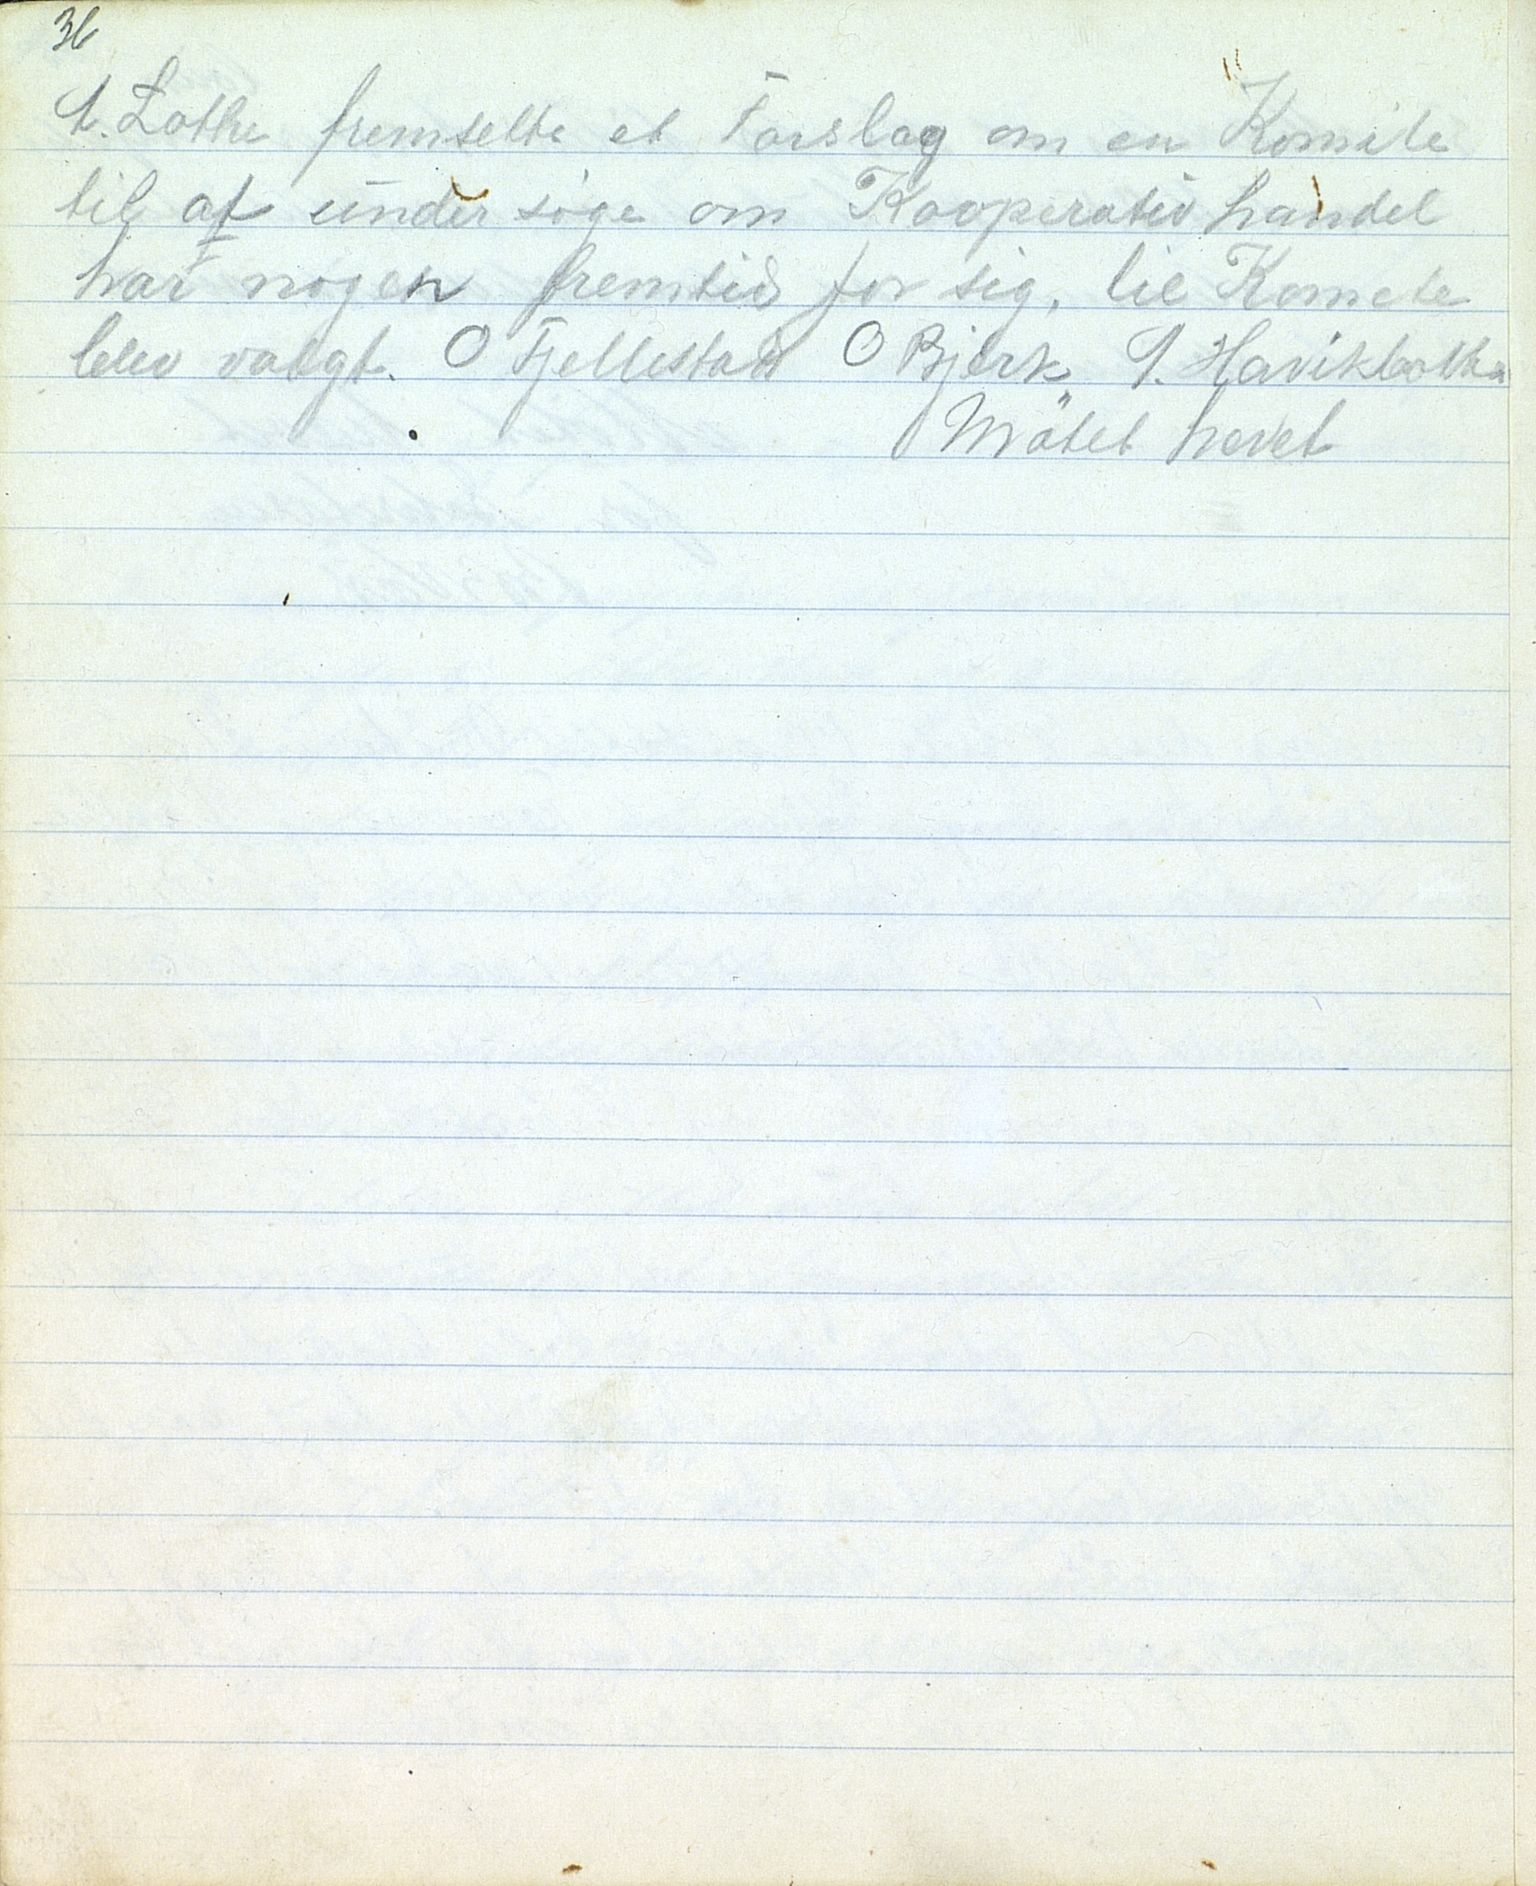 36
A. Lothe fremsette et Forslag om en Komite
til at undersöge om Kooperativ handel
har nogen fremtid for sig, til Komete
blev valgt. O Fjellestad O Bjerk, S. Havikbotten
Mötet hevet